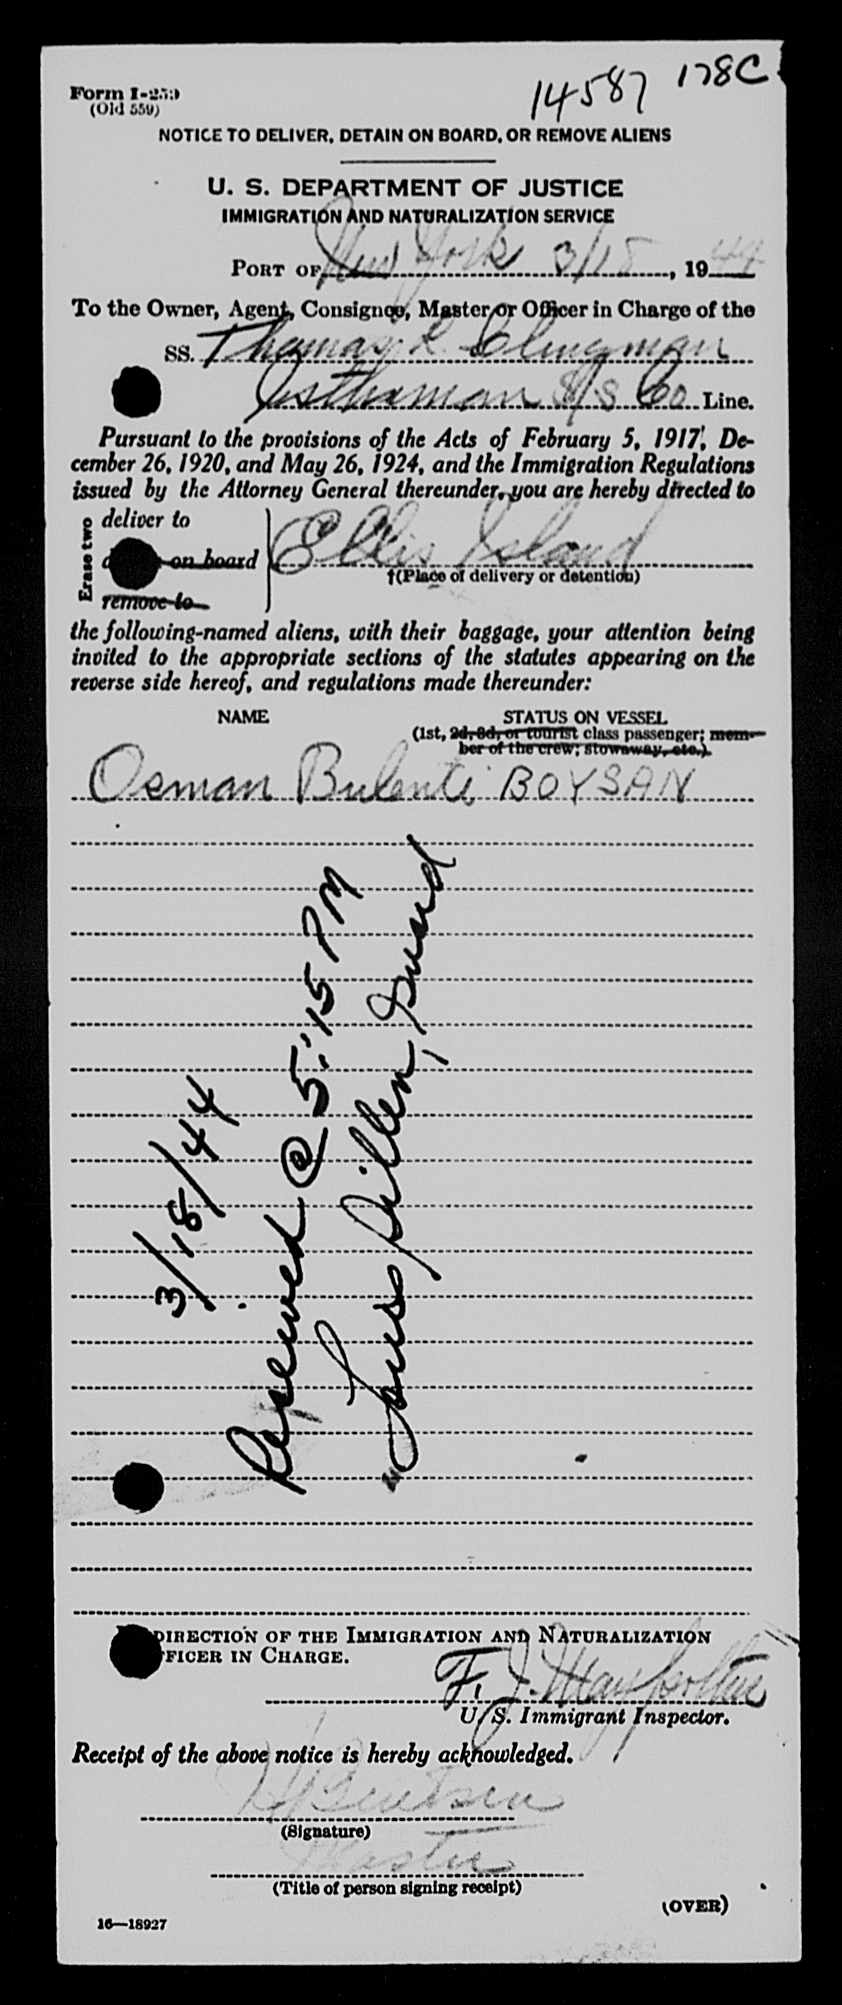 14587 178C
Form I-259
(Old 559)
NOTICE TO DELIVER, DETAIN ON BOARD, OR REMOVE ALIENS
U. S. DEPARTMENT OF JUSTICE
IMMIGRATION AND NATURALIZATION SERVICE
PORT OF New York 3/18, 1944
To the Owner, Agent, Consignee, Master or Officer in Charge of the
SS. Thomas L. Clingman
Isthmian S/S Co Line.
Pursuant to the provisions of the Acts of February 5, 1917, De-
cember 26, 1920, and May 26, 1924, and the Immigration Regulations
issued by the Attorney General thereunder, you are hereby directed to
Erase two
deliver to
on board
remove to
Ellis Island
†(Place of delivery or detention)
the following-named aliens, with their baggage, your attention being
invited to the appropriate sections of the statutes appearing on the
reverse side hereof, and regulations made thereunder:
NAME STATUS ON VESSEL
(1st, 2d, 3d, or tourist class passenger; mem-
ber of the crew; stowaway, etc.)
Osman Bulenti BOYSAN
3/18/44
Received @ 5:15 PM
Louis Dillen, Guard
DIRECTION OF THE IMMIGRATION AND NATURALIZATION
FICER IN CHARGE.
F. J.
U. S. Immigrant Inspector.
Receipt of the above notice is hereby acknowledged.
(Signature)
Master
(Title of person signing receipt)
(OVER)
16—18927